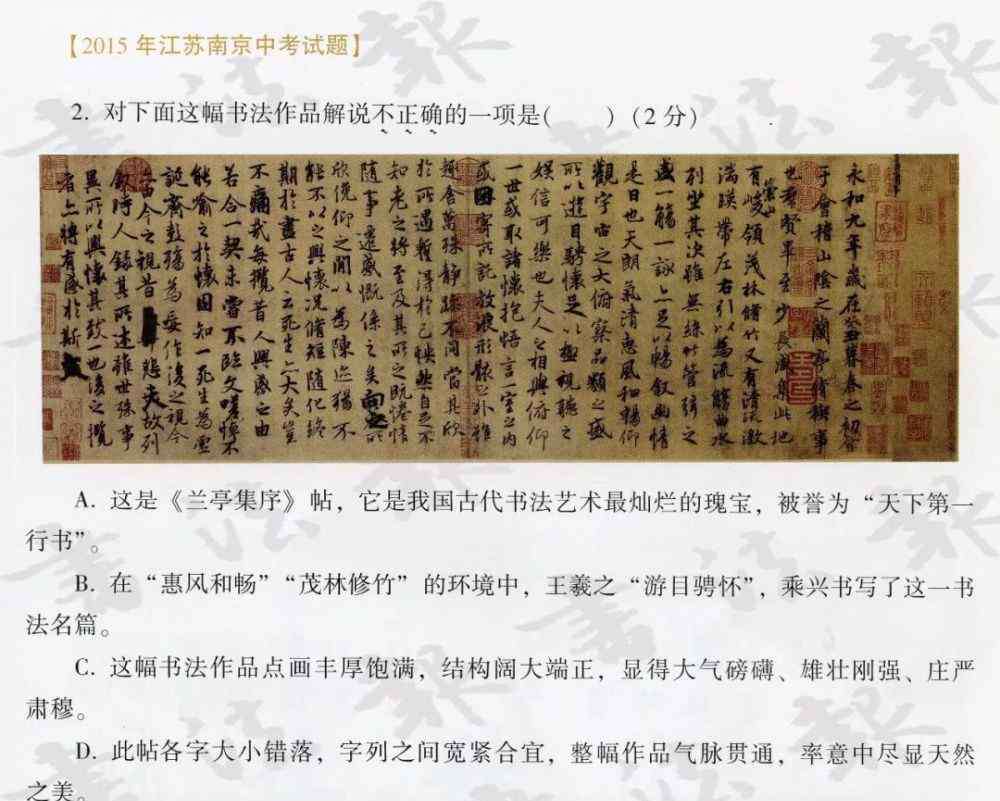 【2015 年江苏南京中考试题】
2. 对下面这幅书法作品解说不正确的一项是(　　)(2 分)
永和九年歲在癸丑暮春之初會
于會稽山陰之蘭亭脩稧事
也羣賢畢至少長咸集此地
有崇山峻領茂林脩竹又有清流激
湍暎帶左右引以為流觴曲水
列坐其次雖無絲竹管弦之
盛一觴一詠亦足以暢敘幽情
是日也天朗氣清惠風和暢仰
觀宇宙之大俯察品類之盛
所以遊目騁懷足以極視聽之
娛信可樂也夫人之相與俯仰
一世或取諸懷抱悟言一室之內
或因寄所託放浪形骸之外雖
趣舍萬殊靜躁不同當其欣
於所遇蹔得於己怏然自足不
知老之將至及其所之既惓情
隨事遷感慨係之矣向之所
欣俛仰之閒以為陳迹猶不
能不以之興懷況脩短隨化終
期於盡古人云死生亦大矣豈
不痛哉每攬昔人興感之由
若合一契未嘗不臨文嗟悼不
能喻之於懷固知一死生為虛
誕齊彭殤為妄作後之視今
亦由今之視昔悲夫故列
敘時人錄其所述雖世殊事
異所以興懷其致一也後之攬
者亦將有感於斯文
A. 这是《兰亭集序》帖，它是我国古代书法艺术最灿烂的瑰宝，被誉为“天下第一
行书”。
B. 在“惠风和畅”“茂林修竹”的环境中，王羲之“游目骋怀”，乘兴书写了这一书
法名篇。
C. 这幅书法作品点画丰厚饱满，结构阔大端正，显得大气磅礴、雄壮刚强、庄严
肃穆。
D. 此帖各字大小错落，字列之间宽紧合宜，整幅作品气脉贯通，率意中尽显天然
之美。